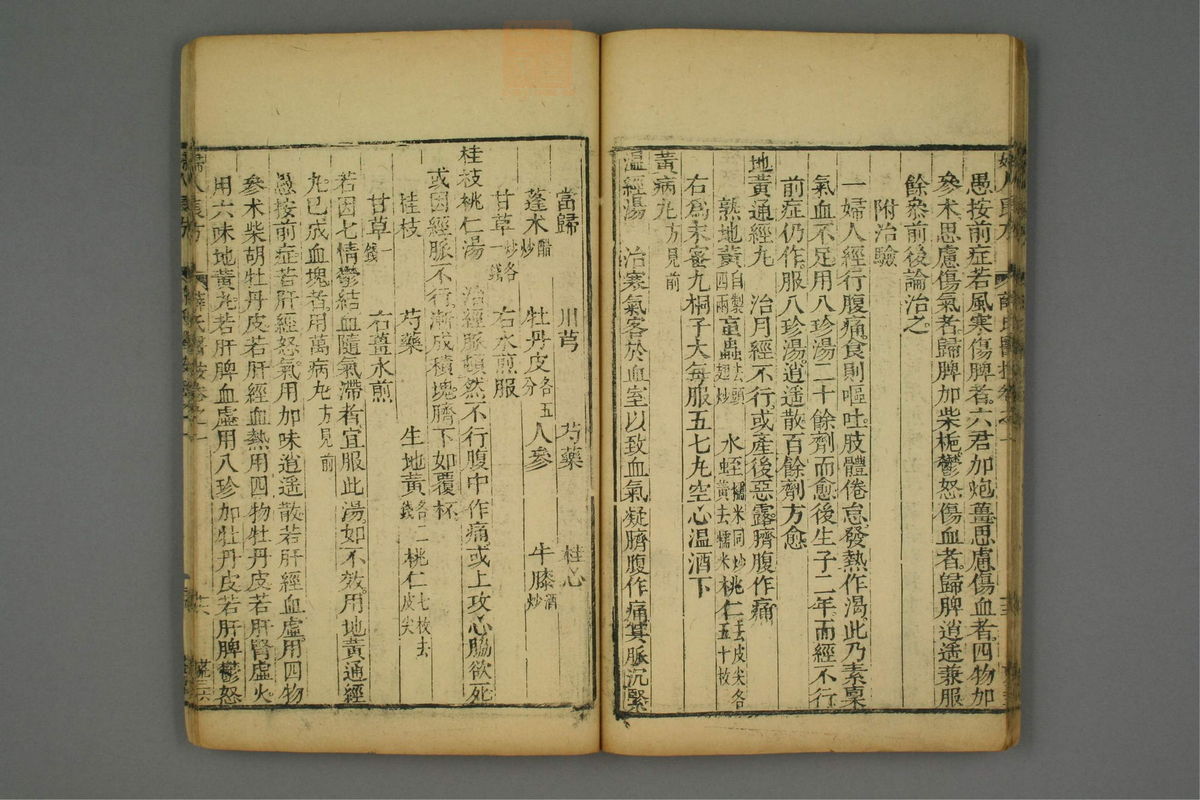 愚按前症若風寒傷脾者六君加炮薑思慮傷血者四物加
參朮思慮傷氣者歸脾加柴梔鬱怒傷血者歸脾逍遥兼服
餘叅前後論治之
附治驗
一婦人經行腹痛食則嘔吐肢體倦怠發熱作渴此乃素稟
氣血不足用八珍湯二十餘劑而愈後生子二年而經不行
前症仍作服八珍湯逍遥散百餘劑方愈
地黃通經丸　治月經不行或產後惡露臍腹作痛
熟地黃自製四兩　䖟蟲去頭翅炒　水蛭糯米同炒黃去糯米　桃仁去皮尖各五十枚
右爲末蜜丸桐子大每服五七丸空心温酒下
黃病丸方見前
温經湯　治寒氣客於血室以致血氣凝臍腹作痛其脈沉緊
當歸　川芎　芍藥　桂心
蓬朮醋炒　牡丹皮各五分　人參　牛膝酒炒
甘草炒各一錢　右水煎服
桂枝桃仁湯　治經脈頓然不行腹中作痛或上攻心脇欲死
或因經脈不行漸成積塊臍下如覆杯
桂枝　芍藥　生地黃各二錢　桃仁七枚去皮尖
甘草一錢　右薑水煎
若因七情鬱結血隨氣滯者宜服此湯如不效用地黃通經
丸已成血塊者用萬病丸方見前
愚按前症若肝經怒氣用加味逍遥散若肝經血虛用四物
參朮柴胡牡丹皮若肝經血熱用四物牡丹皮若肝腎虛火
用六味地黃丸若肝脾血虛用八珍加牡丹皮若肝脾鬱怒
婦人良方　薛氏醫按卷之一